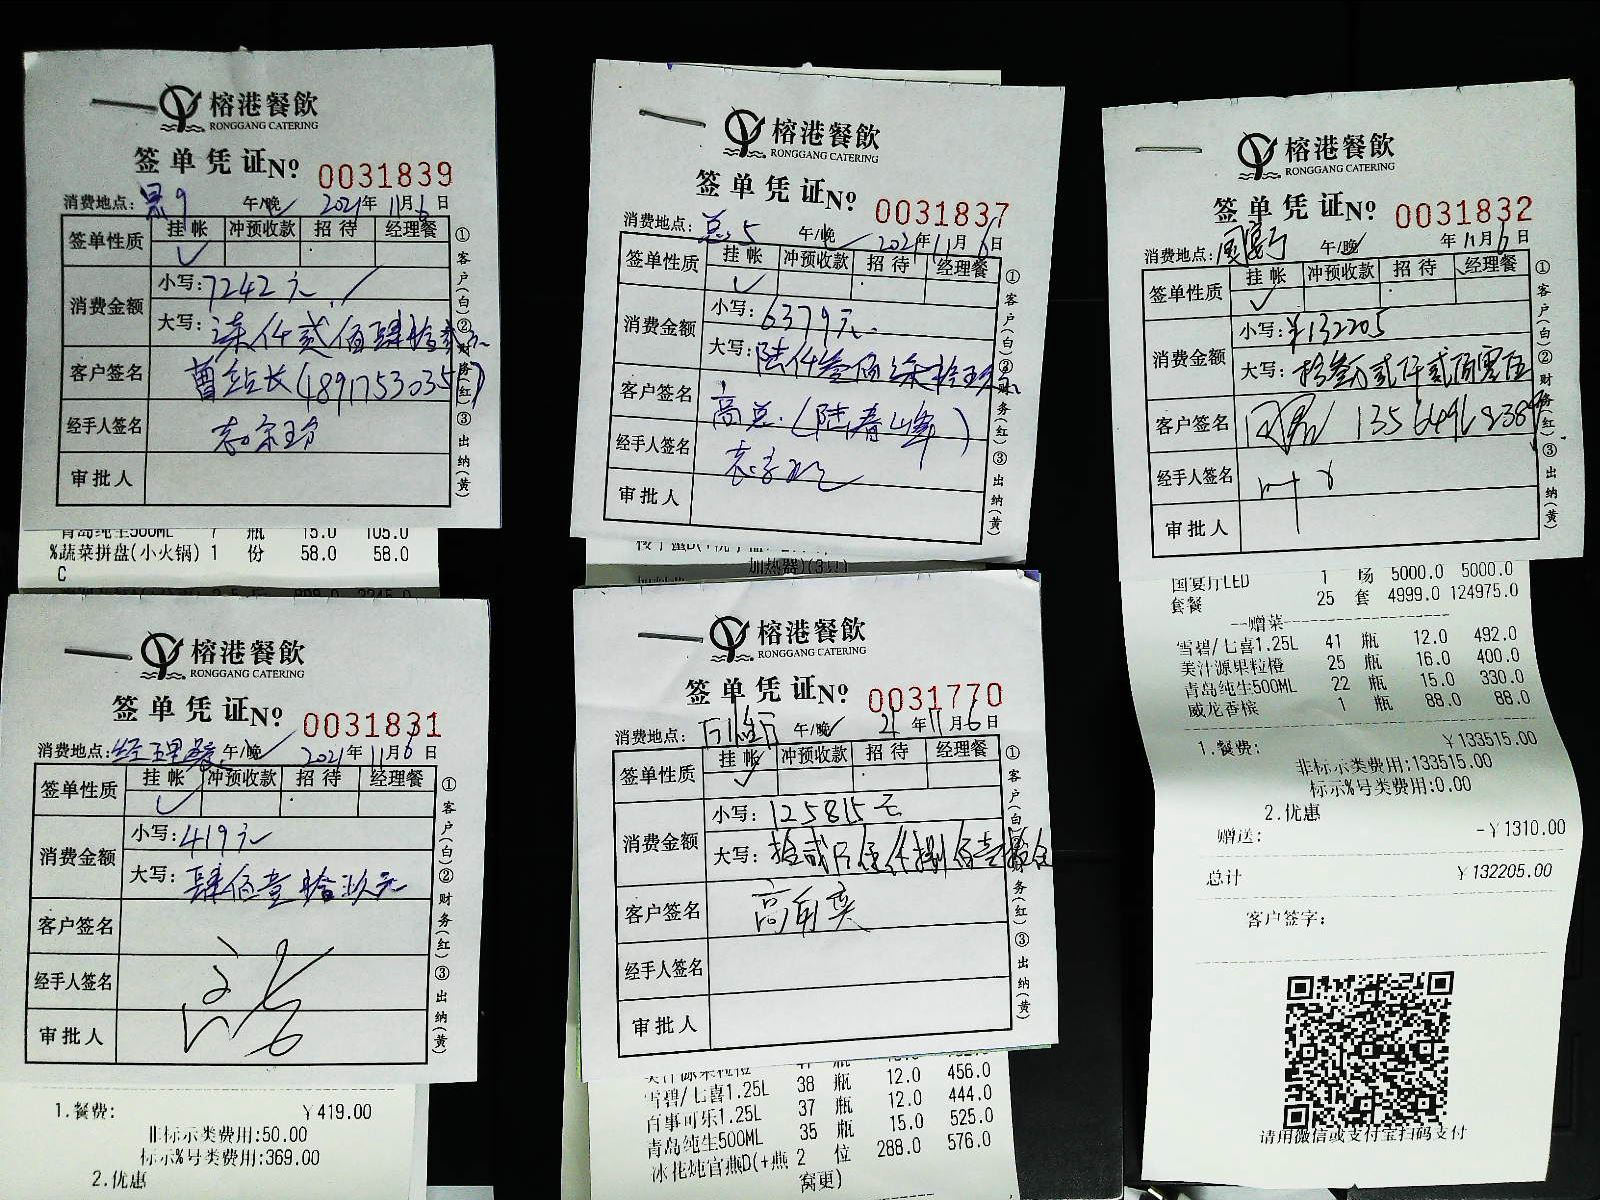 榕港餐飲
RONGGANG CATERING
签单凭证No 0031839
消费地点: 午/晚 2021年11月6日
签单性质 挂帐 冲预收款 招待 经理餐
消费金额 小写:7242元
大写:柒仟贰佰肆拾贰元
客户签名 曹站长(4891753035)
经手人签名
审批人
①客户(白)②财务(红)③出纳(黄)
青岛纯生500ML 7 瓶 15.0 105.0
%蔬菜拼盘(小火锅) 1 份 58.0 58.0
C
榕港餐飲
RONGGANG CATERING
签单凭证No 0031837
消费地点:总5 午/晚 2021年11月6日
签单性质 挂帐 冲预收款 招待 经理餐
消费金额 小写:6379元
大写:陆仟叁佰柒拾玖元
客户签名 高总.(陆春峰)
经手人签名
审批人
①客户(白)②财务(红)③出纳(黄)
加热器)(3只)
榕港餐飲
RONGGANG CATERING
签单凭证No 0031832
消费地点:国宴厅 午/晚 年11月6日
签单性质 挂帐 冲预收款 招待 经理餐
消费金额 小写:¥132205
大写:拾叁万贰仟贰佰零伍
客户签名
经手人签名 叶
审批人
①客户(白)②财务(红)③出纳(黄)
国宴厅LED 1 场 5000.0 5000.0
套餐 25 套 4999.0 124975.0
---赠菜---
雪碧/七喜1.25L 41 瓶 12.0 492.0
美汁源果粒橙 25 瓶 16.0 400.0
青岛纯生500ML 22 瓶 15.0 330.0
威龙香槟 1 瓶 88.0 88.0
1.餐费: ¥133515.00
非标示类费用:133515.00
标示%号类费用:0.00
2.优惠
赠送: -¥1310.00
总计 ¥132205.00
客户签字:
请用微信或支付宝扫码支付
榕港餐飲
RONGGANG CATERING
签单凭证No 0031831
消费地点:经理餐 午/晚 2021年11月6日
签单性质 挂帐 冲预收款 招待 经理餐
消费金额 小写:419元
大写:肆佰壹拾玖元
客户签名
经手人签名
审批人
①客户(白)②财务(红)③出纳(黄)
1.餐费: ¥419.00
非标示类费用:50.00
标示%号类费用:369.00
2.优惠
榕港餐飲
RONGGANG CATERING
签单凭证No 0031770
消费地点: 午/晚 21年11月6日
签单性质 挂帐 冲预收款 招待 经理餐
消费金额 小写:125815元
大写:拾贰万伍仟捌佰壹拾伍
客户签名
经手人签名
审批人
①客户(白)②财务(红)③出纳(黄)
美汁源果粒橙 瓶
雪碧/七喜1.25L 38 瓶 12.0 456.0
百事可乐1.25L 37 瓶 12.0 444.0
青岛纯生500ML 35 瓶 15.0 525.0
冰花炖官燕D(+燕 2 位 288.0 576.0
窝更)